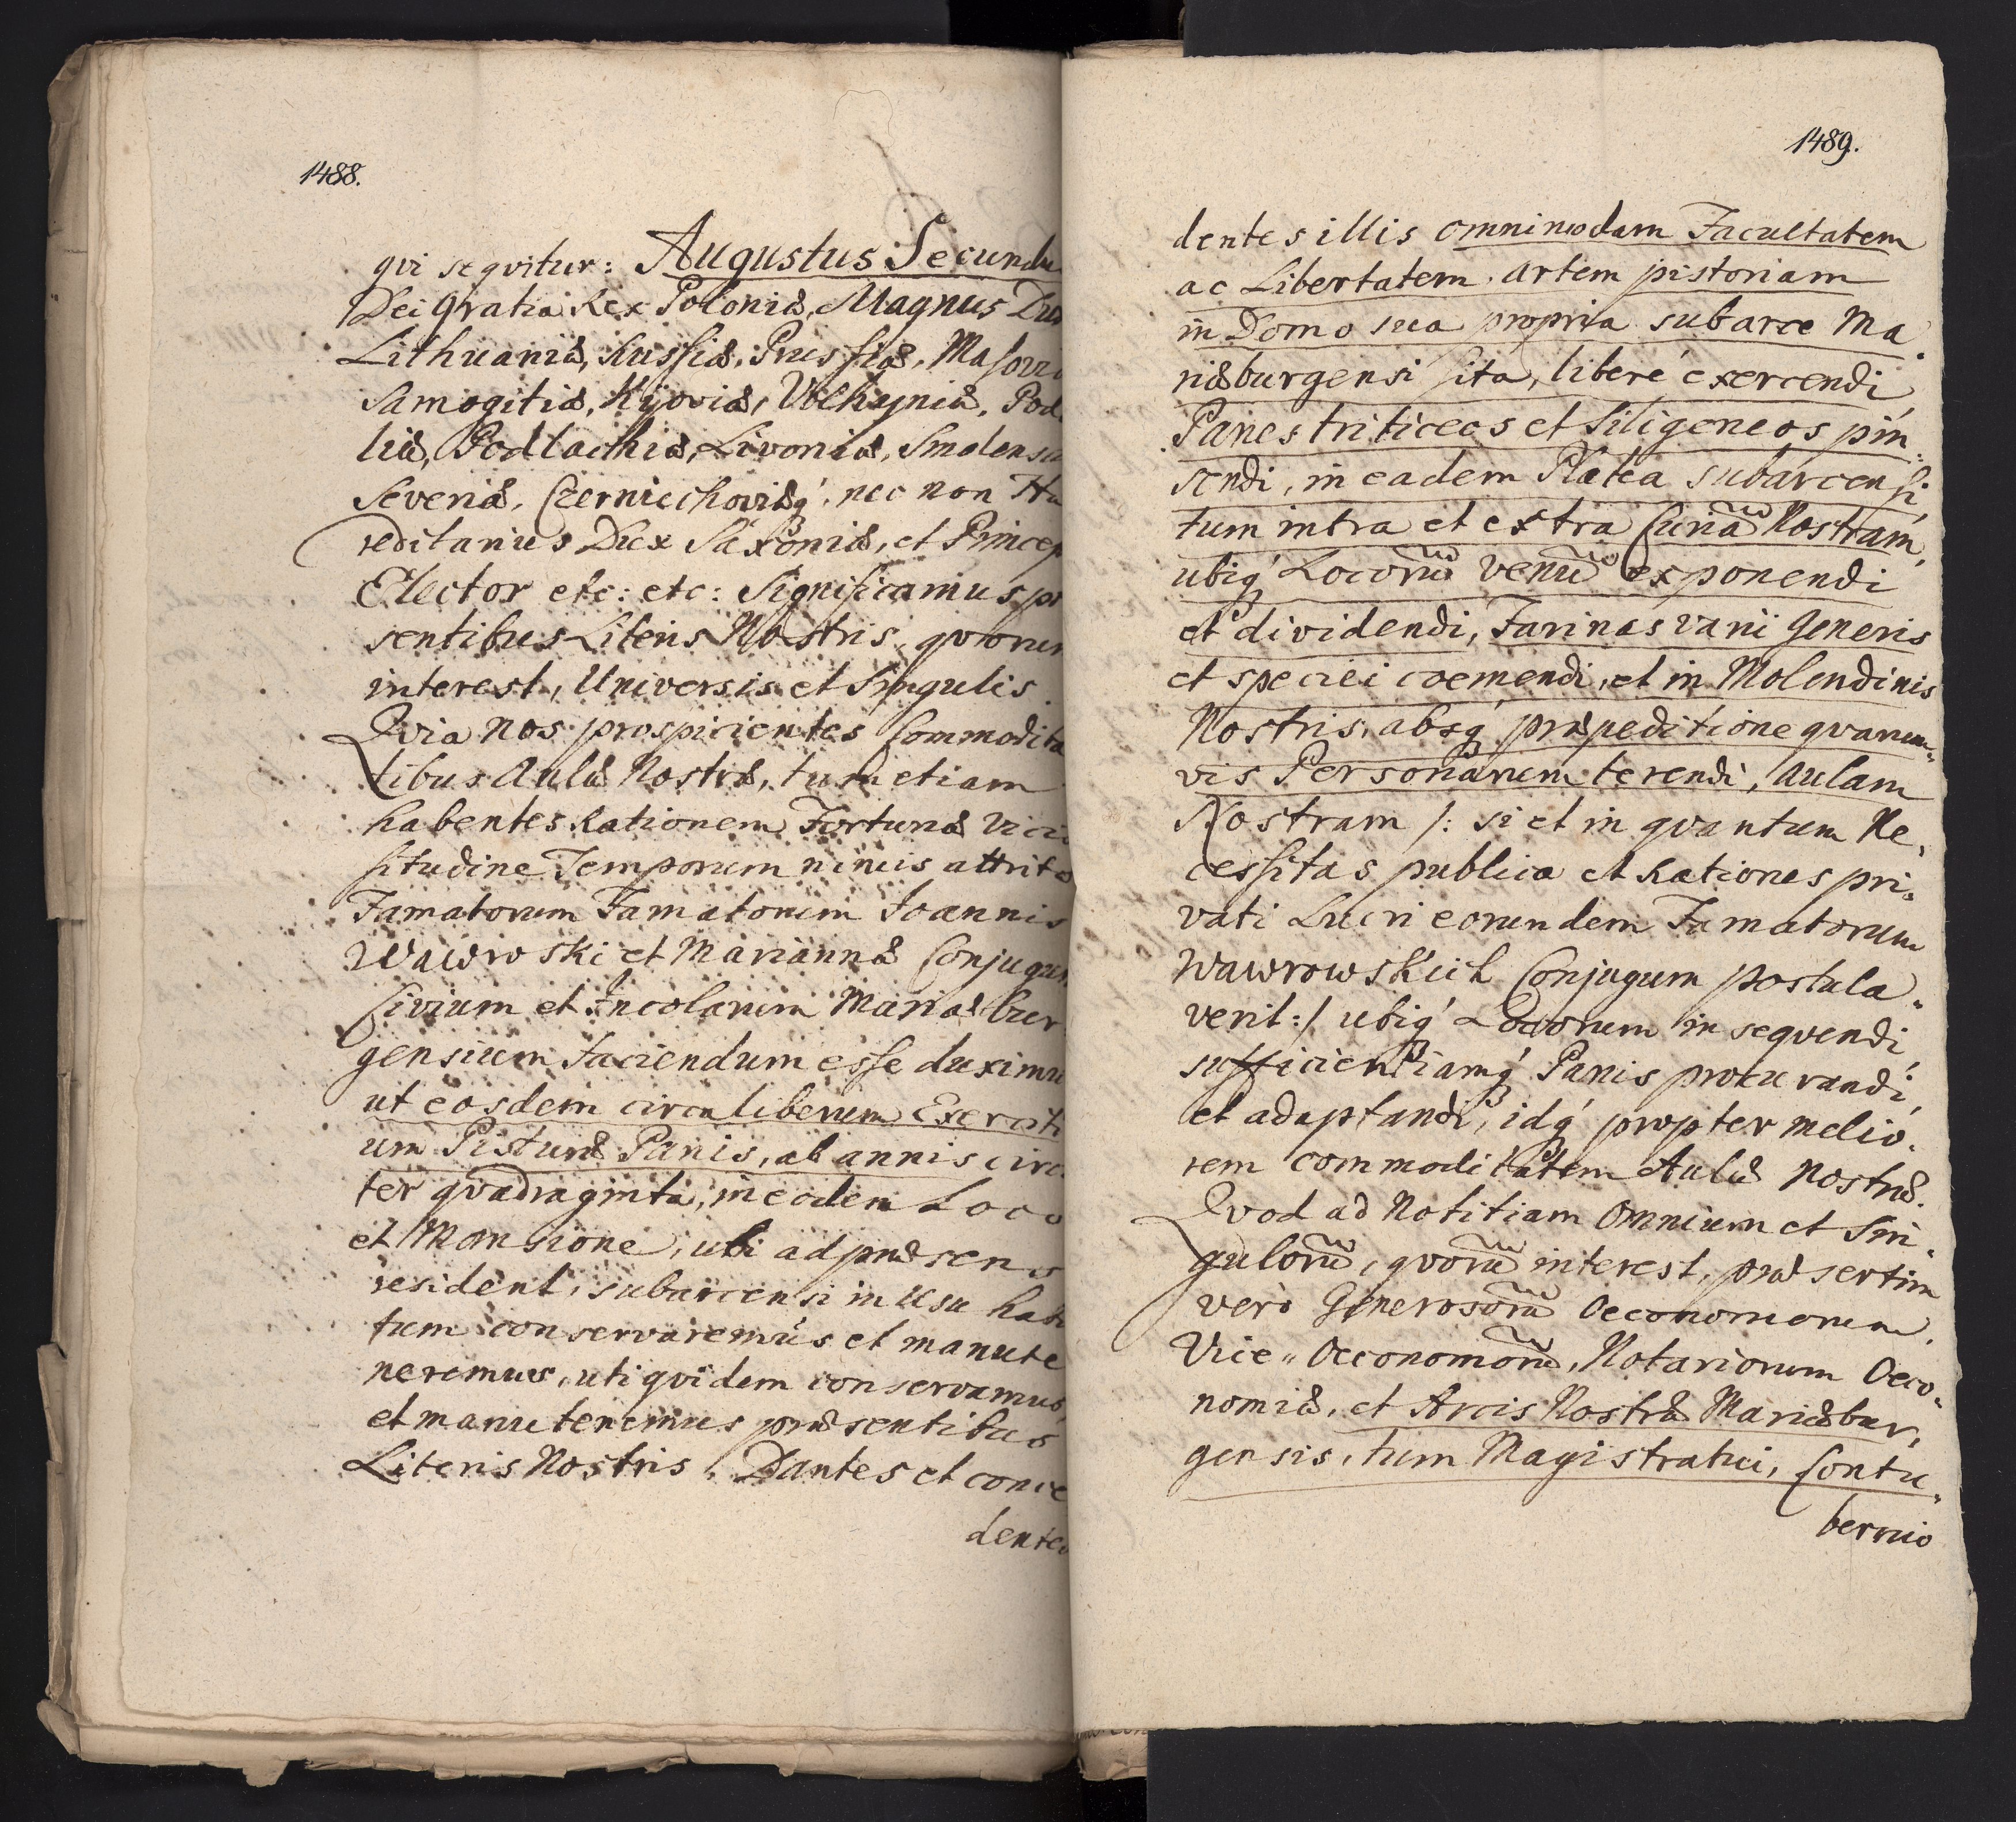 1488.
qvi seqvitur: Augustus Secundu
Dei Gratia Rex Poloniæ, Magnus Dux
Lithuaniæ, Russiæ, Prussiæ, Masovi
Samogitiæ, Kijoviæ, Volhyniæ, Pod
liæ, Podlachiæ, Livoniæ, Smolensci
Severiæ, Czerniechoviæq́, nec non Hæ
reditarius Dux Saxoniæ, et Princep
Elector etc: etc: Significamus præ
sentibus Literis Nostris, qvorum
interest, Universis et Singulis.
Qvia nos prospicientes Commodita
tibus Aulæ Nostræ, tum etiam
habentes Rationem Fortunæ Vicis
situdine Temporum nimis attritæ
Famatorum Famatorum Joannis
Wawrowski et Mariannæ Conjugum
Civium et Incolarum Mariæbur
gensium faciendum esse duximu
ut eosdem circa liberum Exerciti
um Pisturæ Panis, ab annis circi
ter qvadraginta, in eodem Loco
et Mansione, ubi ad præsens
resident, subarcensi in Usu habi
tum conservaremus et manute
neremus, uti qvidem conservamus,
et manutenemus præsentibus
Literis Nostris. Dantes et conce
dentes
1489.
dentes illis omnimodam Facultatem
ac Libertatem, artem pistoriam
in Domo sua propria sub arce Ma
riæburgensi sita, liberé exercendi
Panes triticeos et siligeneos pin
sendi, in eadem Platea subarcensi,
tum intra et extra Curiã Nostram,
ubiq́ Locorũ venũ exponendi
et dividendi, Farinas varii Generis
et speciei coemendi, et in Molendinis
Nostris, absq́ præpeditione qvarum„
vis Personarum terendi, Aulam
Nostram /: si et in qvantum Ne,
cessitas publica et Rationes pri„
vati Lucri eorundem Famatorum
Wawrowskich Conjugum postula„
verit :/ ubiq́ Locorum in seqvendi,
sufficientiamq́ Panis procurandi,
et adaptandi, idq́ propter melio„
rem commoditatem Aulæ Nostræ.
Qvod ad Notitiam Omnium et Sin„
gulorũ, qvorũ interest, præsertim
verò Generosorũ Oeconomorum,
Vice„ Oeconomorũ, Notariorum Oeco„
nomiæ, et Arcis Nostræ Mariæbur,
gensis, tum Magistratui, Contu„
bernio